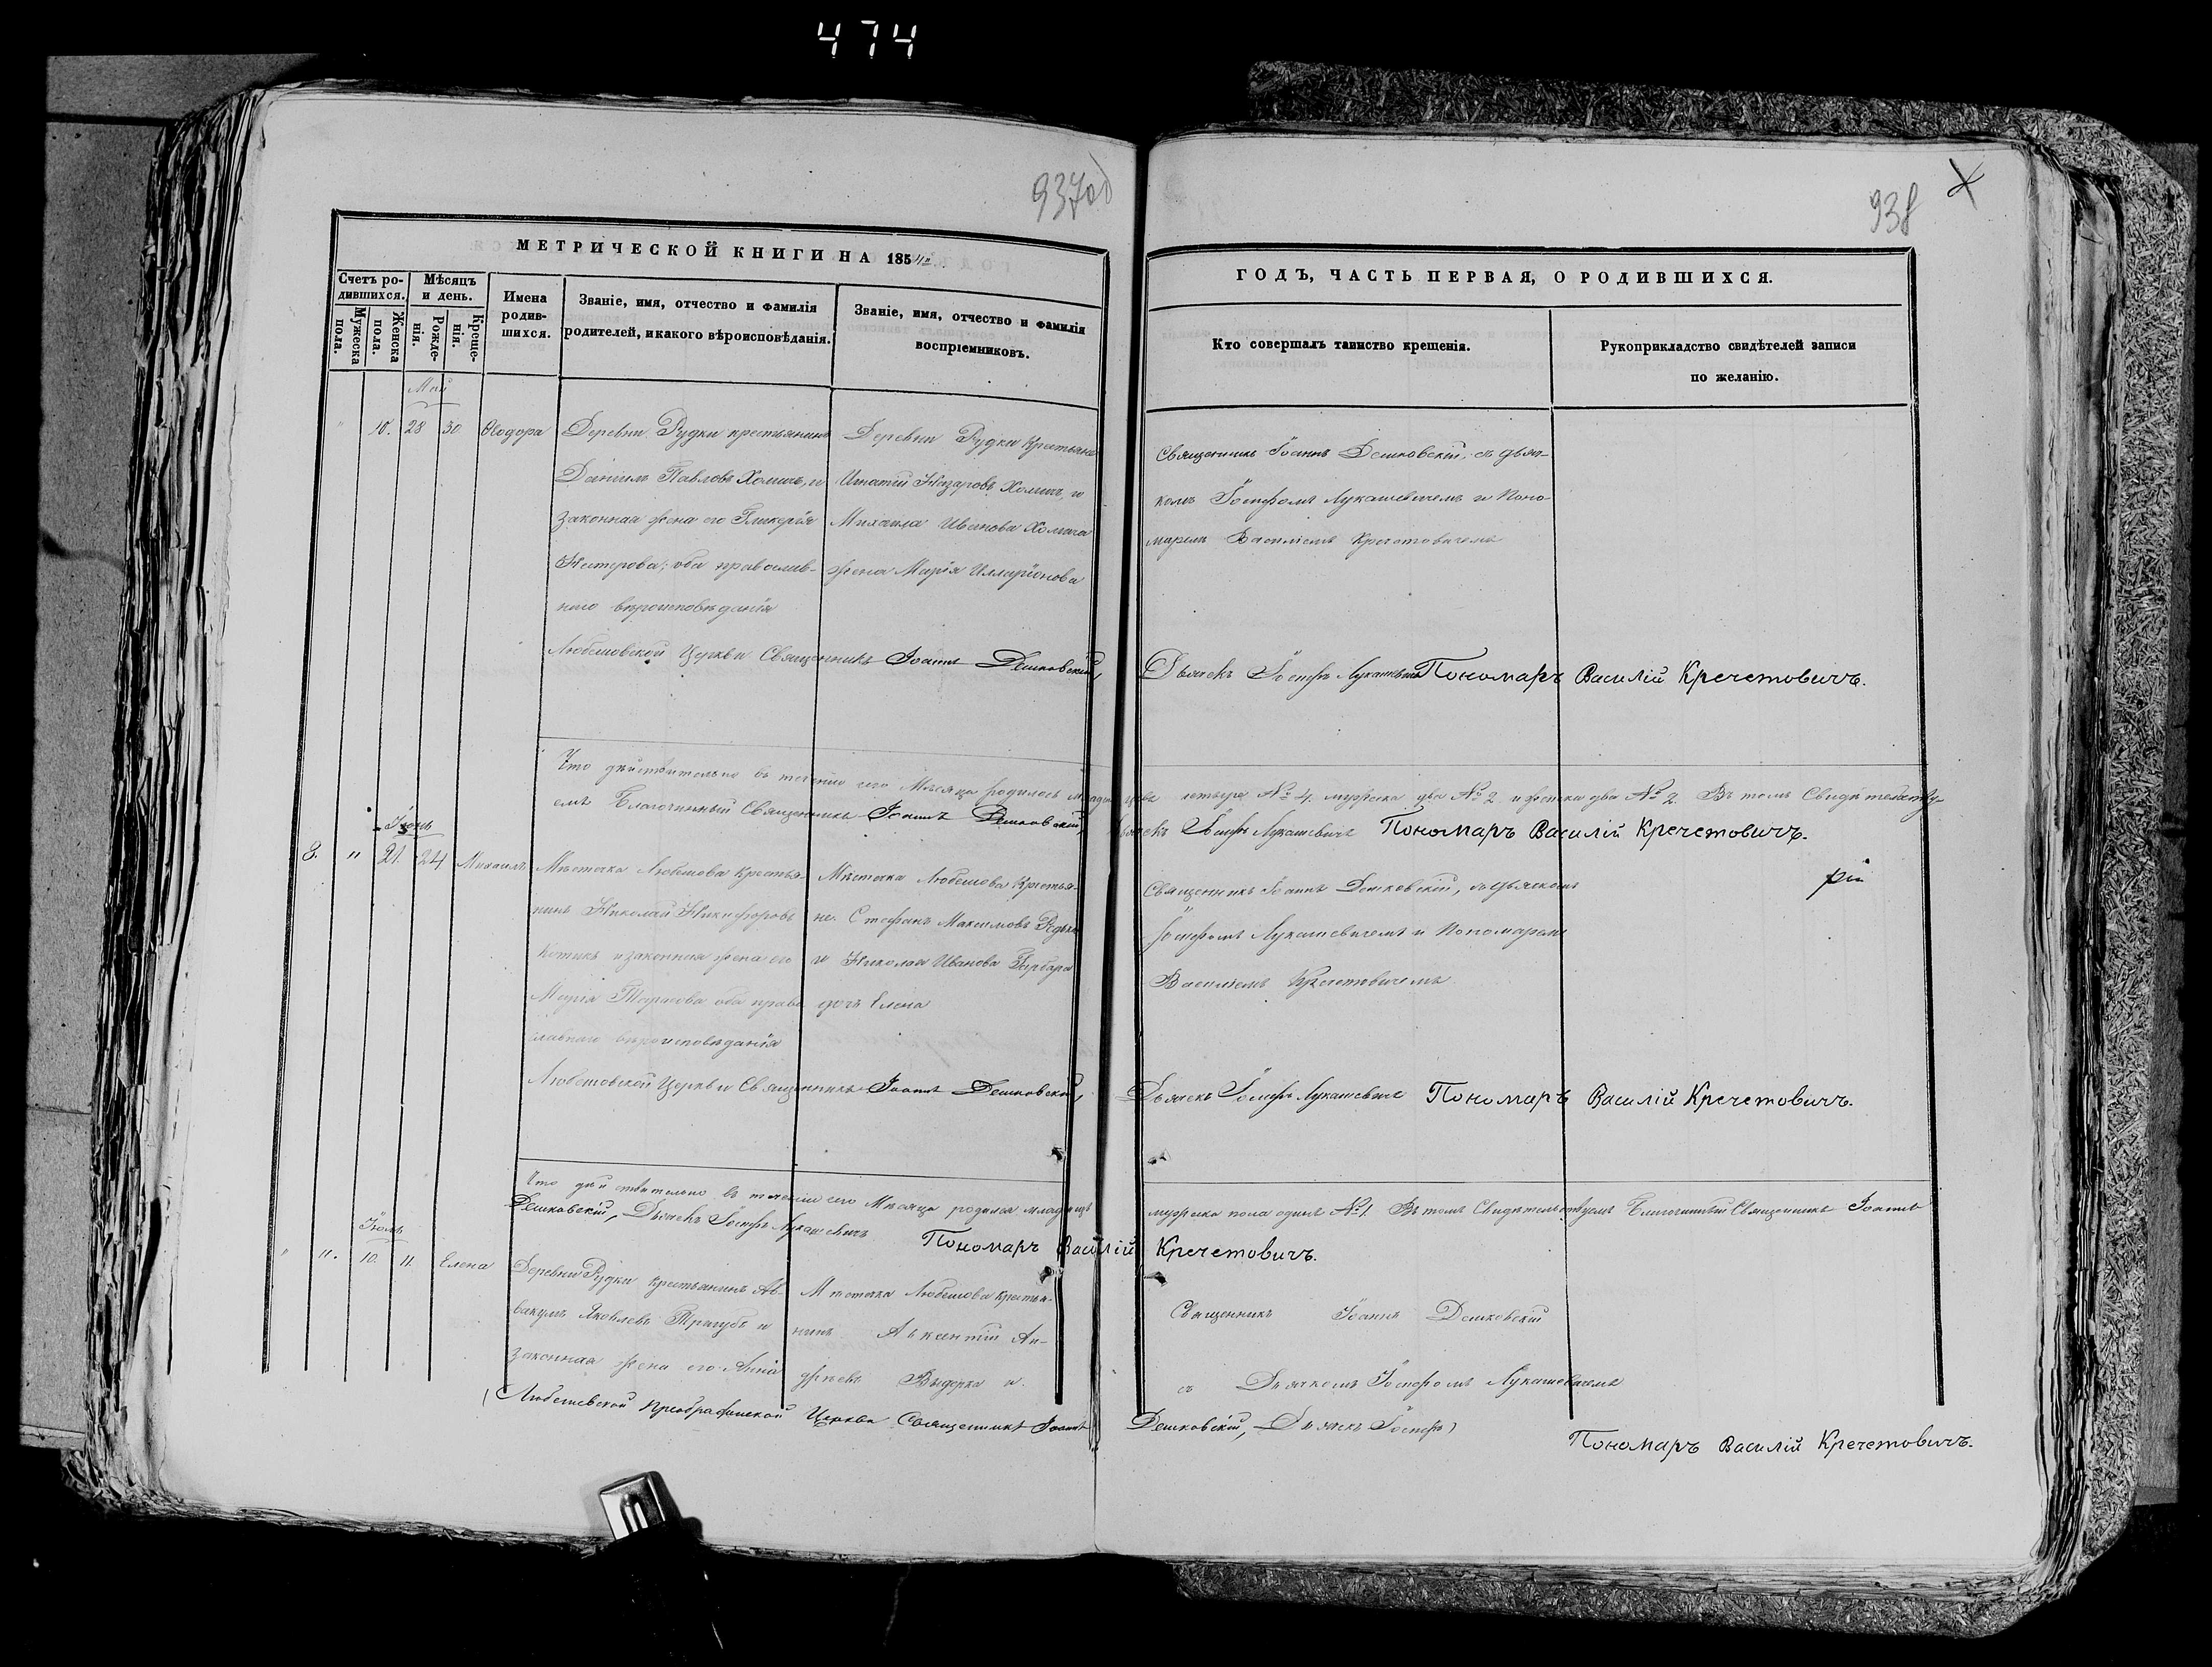 474
937об
938
МЕТРИЧЕСКОЙ КНИГИ НА 1854й
ГОДЪ, ЧАСТЬ ПЕРВАЯ, О РОДИВШИХСЯ.
Счетъ родившихся.
Мужеска пола.
Женска пола.
Мѣсяцъ и день.
Рожденія.
Крещенія.
Имена родившихся.
Званіе, имя, отчество и фамилія
родителей, и какого вѣроисповѣданія.
Званіе, имя, отчество и фамилія
воспріемниковъ.
Кто совершалъ таинство крещенія.
Рукоприкладство свидѣтелей записи
по желанію.
Май
" 10. 28 30 Ѳеодора
Деревни Рудки крестьянинъ
Даніилъ Павловъ Хомичъ, и
законная жена его Гликерія
Нестерова; оба православ-
наго вѣроисповѣданія
Деревни Рудки Крестьяне
Игнатій Назаровъ Хомичъ, и
Михаила Иванова Хомича
жена Марія Илларіонова
Священникъ Іоаннъ Демковскій, съ дьяч-
комъ Іосифомъ Лукашевичемъ и Поно-
маремъ Василіемъ Кречетовичемъ
Любешовской Церкви Священникъ Іоаннъ Демковскій,
Дьячекъ Іосифъ Лукашевичъ Пономаръ Василій Кречетовичъ.
Что дѣйствительно въ теченіи сего Мѣсяца родилось младенцевъ четыре № 4. мужеска два № 2 и женска два № 2. Въ томъ Свидѣтельству-
емъ Благочинный Священникъ Іоаннъ Демковскій, Дьячекъ Іосифъ Лукашевичъ Пономаръ Василій Кречетовичъ.
Іюнь
8. " 21. 24 Михаилъ
Мѣстечка Любешова Крестья-
нинъ Николай Никифоровъ
Котикъ и законная жена его
Марія Тарасова оба право
славнаго вѣроисповѣданія
Мѣстечка Любешова Крестья-
не. Стефанъ Максимовъ Редько
и Николая Иванова
дочь Елена
Священникъ Іоаннъ Демковскій, съ дьячкомъ
Іосифомъ Лукашевичемъ и Пономаремъ
Василіемъ Кречетовичемъ
Любешовской Церкви Священникъ Іоаннъ Демковскій,
Дьячекъ Іосифъ Лукашевичъ Пономаръ Василій Кречетовичъ.
Что дѣйствительно въ теченіи сего Мѣсяца родился младенецъ мужеска пола одинъ № 1. Въ томъ Свидѣтельствуемъ Благочинный Священникъ Іоаннъ
Демковскій, Дьячекъ Іосифъ Лукашевичъ Пономаръ Василій Кречетовичъ.
Іюль
" 11. 10. 11. Елена
Деревни Рудки крестьянинъ Ав-
вакумъ Яковлевъ Тригубъ и
законная жена его Анна
Мѣстечка Любешова крестья-
нинъ Авксентій Ан-
дреевъ Выдерка и
Священникъ Іоаннъ Демковскій
съ Дьячкомъ Іосифомъ Лукашевичемъ
(Любешевской Преображенской Церкви Священникъ Іоаннъ Демковскій, Дьячекъ Іосифъ)
Пономаръ Василій Кречетовичъ.